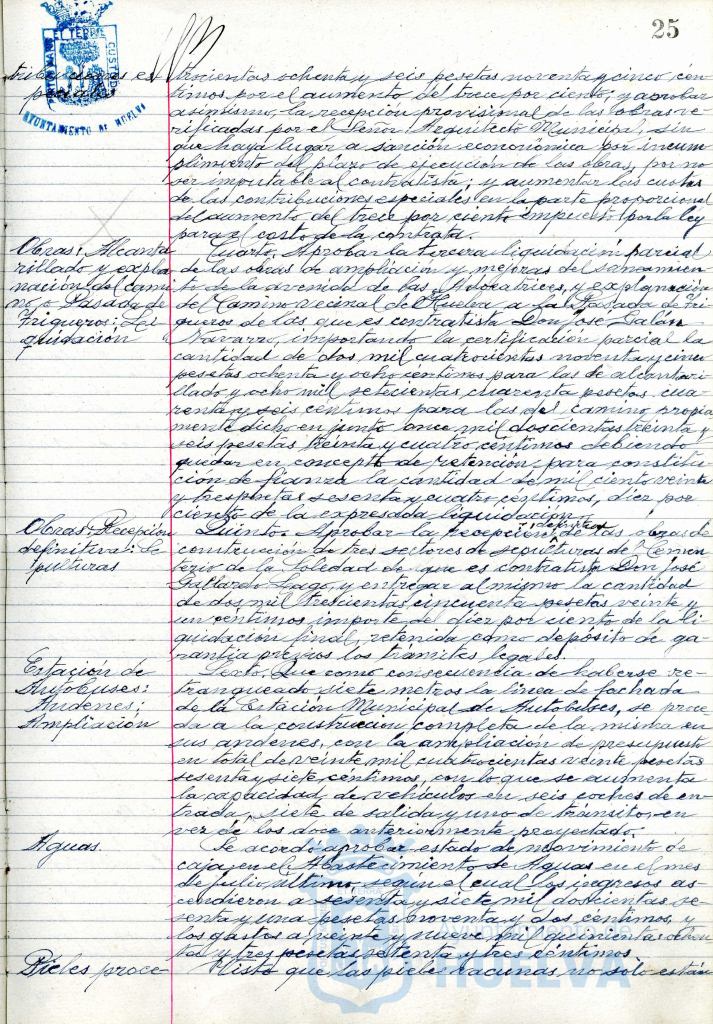 25
EL TERRIS
CUSTODIA
AYUNTAMIENTO DE HUELVA
tribuciones es
peciales
trocientas ochenta y seis pesetas noventa y cinco cén
timos por el aumento del trece por ciento; y aprobar
asimismo, la recepción provisional de las obras ve
rificadas por el Señor Arquitecto Municipal, sin
que haya lugar a sanción económica por incum
plimiento del plazo de ejecución de las obras, por no
ser imputable al contratista; y aumentar las cuotas
de las contribuciones especiales en la parte proporcional
del aumento del trece por ciento impuesto por la ley
para el costo de la contrata.
Obras: Alcanta
rillado y expla
nación del cami
no a Pasada de
Trigueros: Li
quidación
Cuarto. Aprobar la tercera liquidación parcial
de las obras de ampliación y mejoras del saneamien
to de la avenida de las Adoratrices, y explanación
del Camino vecinal de Huelva a la Pasada de Tri
gueros de las que es contratista Don José Galán
Navarro, importando la certificación parcial la
cantidad de dos mil cuatrocientos noventa y cinco
pesetas ochenta y ocho céntimos para las de alcanta
rillado y ocho mil setecientas cuarenta pesetas cua
renta y seis céntimos para las del camino propia
mente dicho en junto once mil doscientas treinta y
seis pesetas treinta y cuatro céntimos debiendo
quedar en concepto de retención para constitu
ción de fianza la cantidad de mil ciento veinte
y tres pesetas sesenta y cuatro céntimos, diez por
ciento de la expresada liquidación.
Obras: Recepción
definitiva: Se
pulturas
Quinto. Aprobar la recepción definitiva de las obras de
construcción de tres sectores de sepulturas de Cemen
terio de la Soledad de que es contratista Don José
Gallardo Lago, y entregar al mismo la cantidad
de dos mil trescientas cincuenta pesetas veinte y
un céntimos importe del diez por ciento de la li
quidación final, retenida como depósito de ga
rantía previos los trámites legales.
Estación de
Autobuses:
Andenes;
Ampliación
Sexto. Que como consecuencia de haberse re
tranqueado siete metros la línea de fachada
de la Estación Municipal de Autobuses, se proce
da a la construcción completa de la misma en
sus andenes, con la ampliación de presupuesto
en total de veinte mil cuatrocientas veinte pesetas
sesenta y siete céntimos, con lo que se aumenta
la capacidad de vehículos en seis coches de en
trada, siete de salida y uno de tránsito, en
vez de los doce anteriormente proyectado.
Aguas.
Se acordó aprobar estado de movimiento de
caja en el Abastecimiento de Aguas en el mes
de julio último, según el cual los ingresos as
cendieron a sesenta y siete mil doscientas se
senta y una pesetas noventa y dos céntimos, y
los gastos a veinte y nueve mil quinientas ochen
ta y tres pesetas setenta y tres céntimos.
Pieles proce
Visto que las pieles vacunas no solo están
Ayuntamiento de
HUELVA